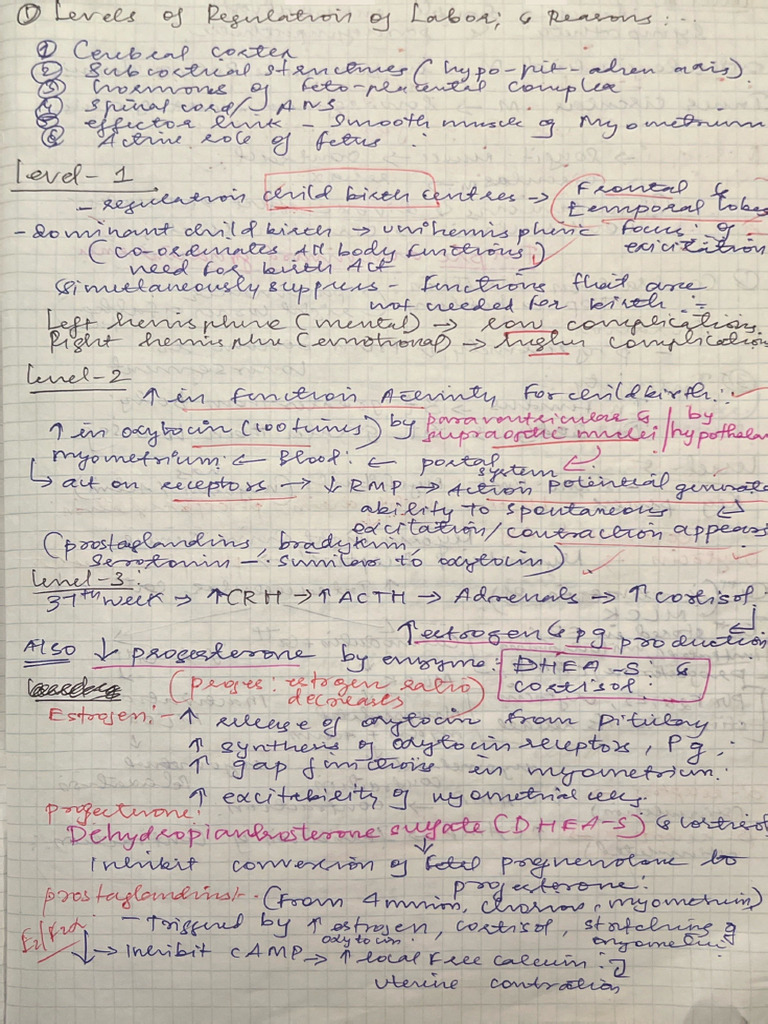 ① Levels of Regulation of Labor; & Reasons:..
① Cerebral cortex
② Subcortical structures (hypo-pit-adren axis)
③ hormons of feto-placental complex
④ Spinal cord/ANS
⑤ effector link - Smooth muscle of Myometrium
⑥ Active role of fetus
Level-1
- regulation child birth centres → Frontal & temporal lobes
- Dominant child birth → unihemispheric focus: of exicitation
(co-ordinates All body functions)
need for birth Act
Simultaneously suppress - functions that are
not needed for birth
Left hemisphere (mental) → low complications
Right hemisphere (emotional) → higher complication
Level-2
↑ in function Activity for child birth:
↑ in oxytocin (100 times) by paraventricular & supraoptic nuclei / by hypothalam
myometrium ← Blood: ← portal system
↳ act on receptors → ↓ RMP → Action potential generate
ability to spontaneous
excitation/contraction appears
(prostaglandins, bradykinin,
Serotonin - similar to oxytocin)
Level-3:
37th week → ↑CRH → ↑ACTH → Adrenals → ↑cortisol
↑estrogen & pg production
Also ↓ progesterone by enzyme: DHEA-S & cortisol:
(proges: estrogen ratio decreases)
Estrogen:- ↑ release of oxytocin from Pitutary
↑ synthesis of oxytocin receptors, Pg,
↑ gap functions in myometrium:
↑ excitability of myometrial cells.
progesterone:
Dehydropiandrosterone sulfate (DHEA-S) & cortisol
↓
Inhibit conversion of pregnenolone to
progesterone:
prostaglandins:- (from Amnion, chorion, myometrium)
- Triggered by ↑ estrogen, oxytocin, cortisol, stretching of myometriu
E2/F2α ↓→ Inhibit cAMP → ↑ local free calcium:
uterine contration